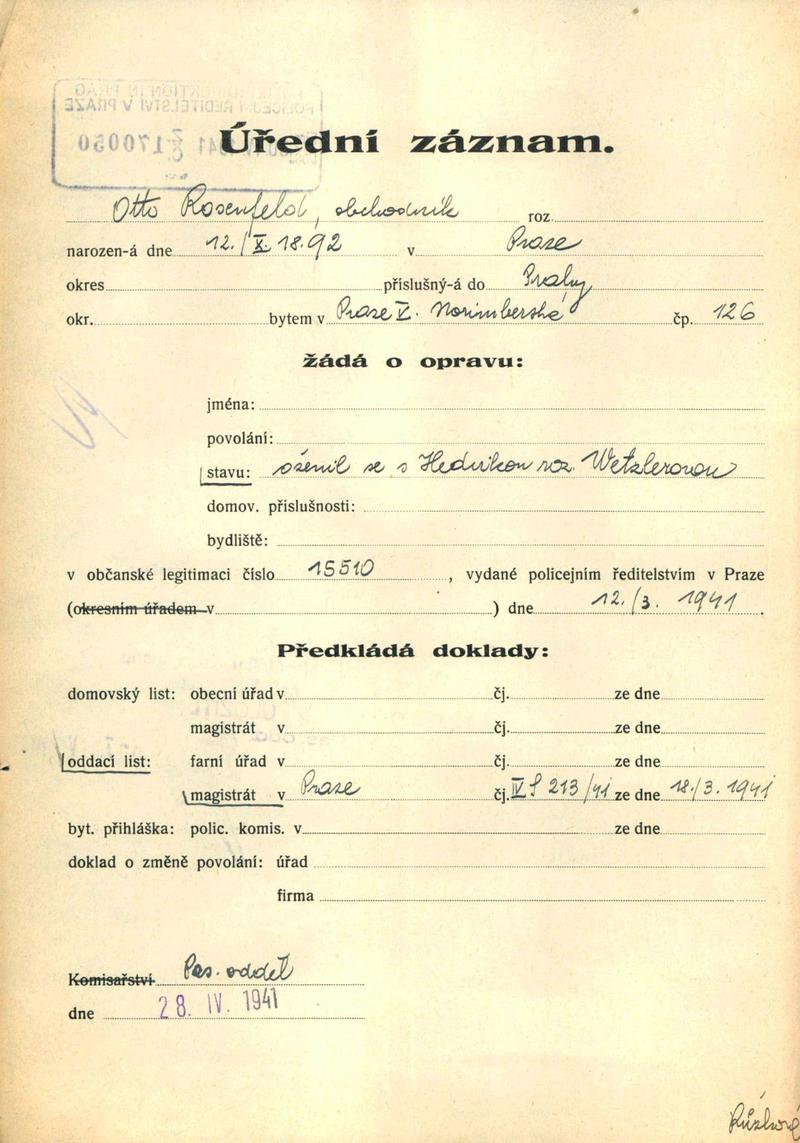 Úřední záznam.
Otto Rosenfeld, obchodník roz.
narozen-á dne 12./X. 1892 v Praze
okres příslušný-á do Prahy
okr. bytem v Praze V. Norimberská čp. 126
žádá o opravu:
jména:
povolání:
stavu: oženil se s Hedvikou roz. Wetzlerovou
domov. příslušnosti:
bydliště:
v občanské legitimaci číslo 15510, vydané policejním ředitelstvím v Praze
(okresním úřadem v ) dne 12./3. 1941.
Předkládá doklady:
domovský list: obecní úřad v čj. ze dne
magistrát v čj. ze dne
oddací list: farní úřad v čj. ze dne
magistrát v Praze čj. IV 213/41 ze dne 18./3. 1941
byt. přihláška: polic. komis. v ze dne
doklad o změně povolání: úřad
firma
Komisařství Pas. odděl
dne 28. IV. 1941